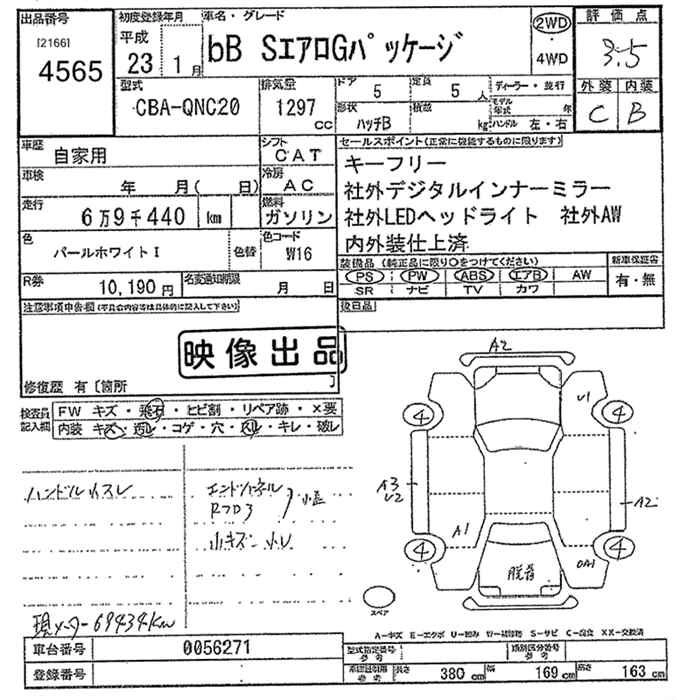 出品番号
[2166]
4565
初度登録年月
平成
23 1月
車名・グレード
bB SエアロGパッケージ
2WD
4WD
評価点
3.5
型式
CBA-QNC20
排気量
1297 cc
ドア 5
定員 5 人
ディーラー・並行
形状
ハッチB
積載 kg
モデル年式 年
ハンドル 左・右
外装 内装
C B
車歴
自家用
シフト
CAT
車検
年 月( 日)
冷房
AC
走行
6万9千440 km
燃料
ガソリン
色
パールホワイトI
色替
色コード
W16
R券
10,190円
名変通知期限
月 日
セールスポイント(正常に機能するものに限ります)
キーフリー
社外デジタルインナーミラー
社外LEDヘッドライト 社外AW
内外装仕上済
装備品(純正品に限り○をつけてください)
PS PW ABS エアB AW
SR ナビ TV カワ
新車保証書
有・無
注意事項申告欄(不具合内容等は具体的に記入して下さい)
後日品
映像出品
修復歴 有〔箇所 〕
検査員記入欄
FW キズ・飛石・ヒビ割・リペア跡・×要
内装 キズ・汚レ・コゲ・穴・スレ・キレ・破レ
ハンドルスレ
エンドパネル
小キズ
現メーター69434km
A2
U1
4
4
A3
U2
A2
A1
4
4
脱着
スペア
A-キズ E-エクボ U-凹み W-補修跡 S-サビ C-腐食 XX-交換済
車台番号
0056271
登録番号
型式指定番号
参考
類別区分番号
参考
参考
長さ 380 cm 幅 169 cm 高さ 163 cm